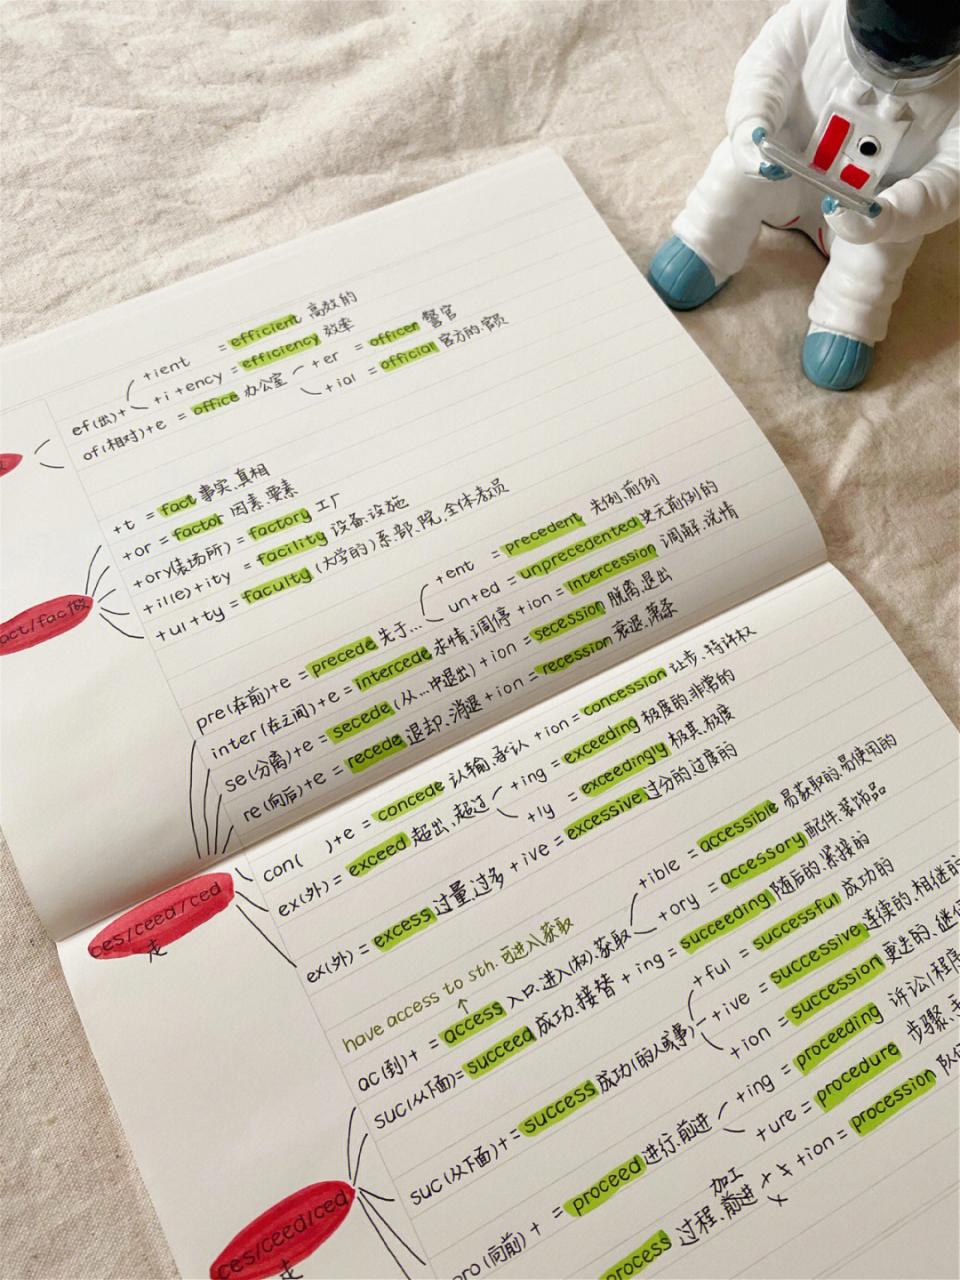 +ient = efficient 高效的
ef(出)+ +i +ency = efficiency 效率
of(相对)+e = office 办公室 +er = officer 警官
+ial = official 官方的.官员
+t = fact 事实.真相
+or = factor 因素.要素
+ory(表场所) = factory 工厂
+il(e)+ity = facility 设备.设施
+ul+ty = faculty (大学的)系.部.院.全体教员
act/fac/做
+ent = precedent 先例.前例
pre(在前)+e = precede 先于... un+ed = unprecedented 史无前例的
inter(在之间)+e = intercede 求情.调停 +ion = intercession 调解.说情
se(分离)+e = secede (从...中退出) +ion = secession 脱离.退出
re(向后)+e = recede 退却.消退 +ion = recession 衰退.萧条
con( )+e = concede 认输.承认 +ion = concession 让步.特许权
ex(外) = exceed 超出.超过 +ing = exceeding 极度的.非常的
+ly = exceedingly 极其.极度
ces/ceed/ced
走
ex(外) = excess 过量.过多 +ive = excessive 过分的.过度的
have access to sth. 可进入获取
+ible = accessible 易获取的.易使用的
ac(到)+ = access 入口.进入(权).获取 +ory = accessory 配件.装饰品
suc(从下面) = succeed 成功.接替 +ing = succeeding 随后的.紧接的
+ful = successful 成功的
suc(从下面)+ = success 成功(的人或事) +ive = successive 连续的.相继的
+ion = succession 更迭的.继任
pro(向前) + = proceed 进行.前进 +ing = proceeding 诉讼.程序
+ure = procedure 步骤.手
process 过程.前进 加工 +ion = procession 队伍
ces/ceed/ced
走